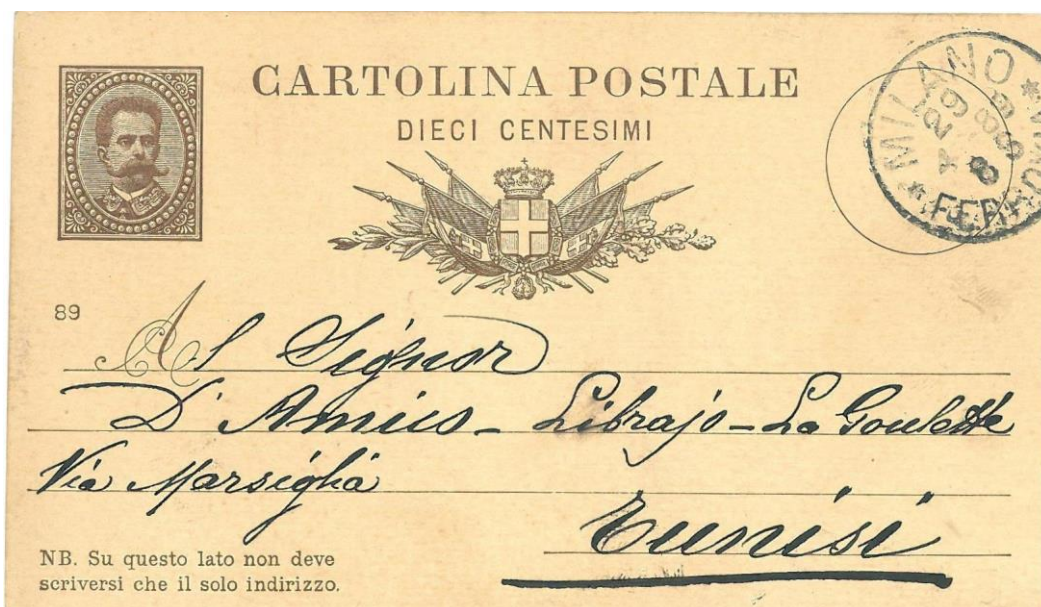 CARTOLINA POSTALE
DIECI CENTESIMI
MILANO
89
Al Signor
D'Amico - Librajo - La Goulette
Via Marsiglia
Tunisi
NB. Su questo lato non deve
scriversi che il solo indirizzo.